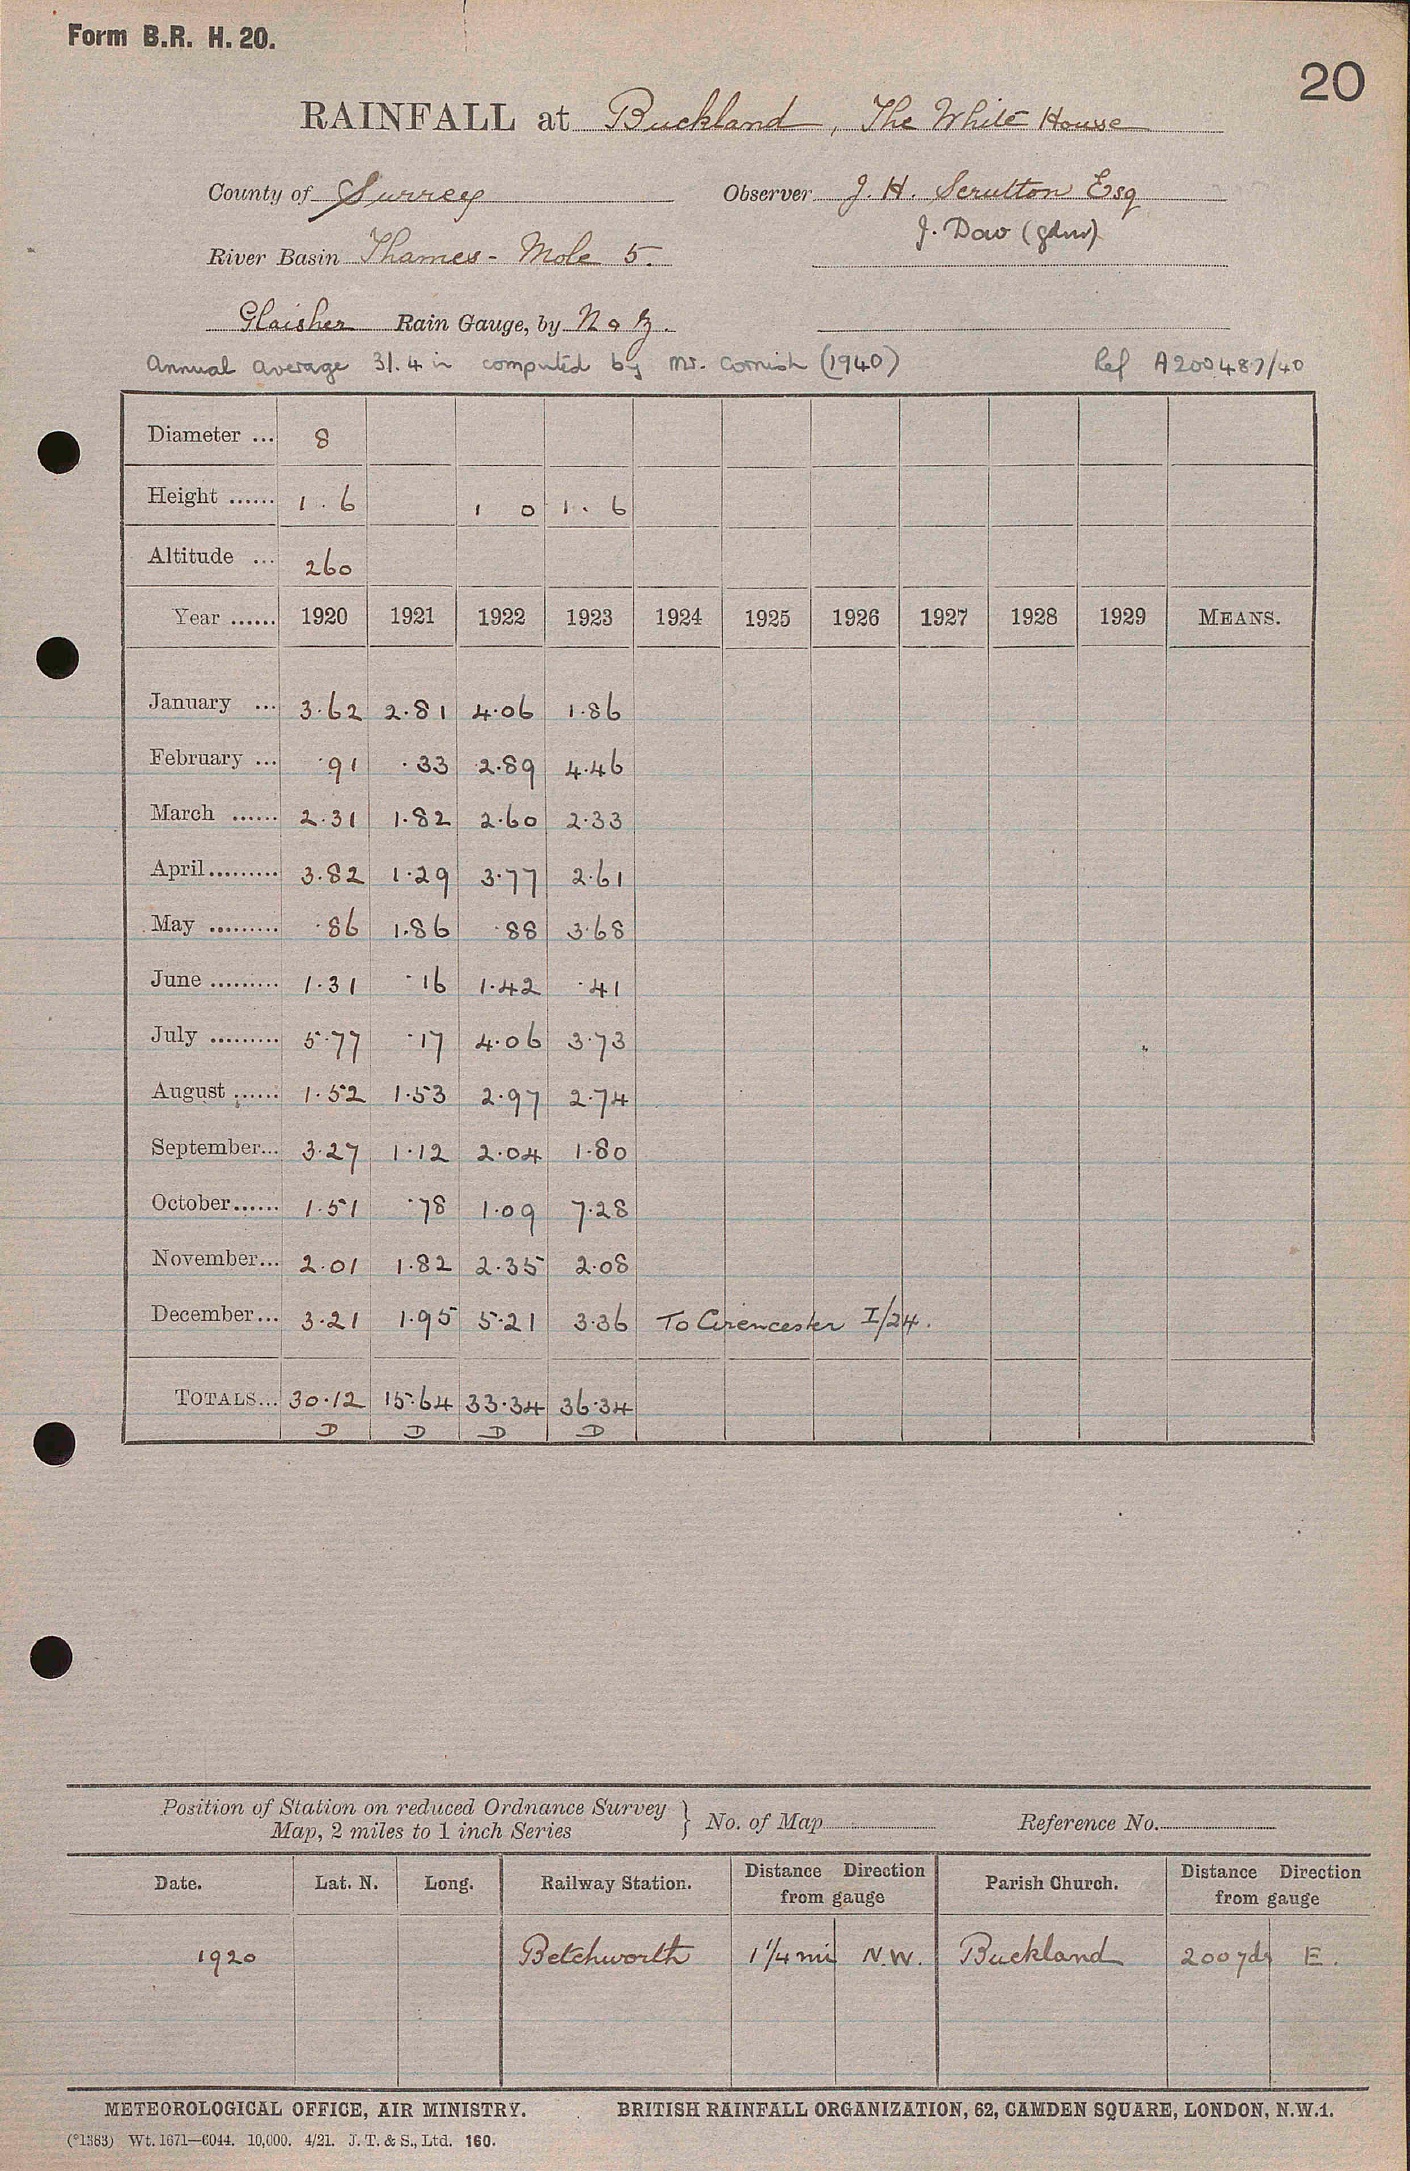 Form B.R. H. 20.
20
RAINFALL at Buckland, The White House
County of Surrey Observer J. H. Scrutton Esq
J. Dow (gdnr)
River Basin Thames - Mole 5.
Glaisher Rain Gauge, by N & Z.
Annual average 31.4 in computed by Mr. Cornish (1940) Ref A200487/40
Diameter ... 8
Height ...... 1 . 6 1 0 1 . 6
Altitude ... 260
Year ...... 1920 1921 1922 1923 1924 1925 1926 1927 1928 1929 MEANS.
January ... 3.62 2.81 4.06 1.86
February ... .91 .33 2.89 4.46
March ...... 2.31 1.82 2.60 2.33
April......... 3.82 1.29 3.77 2.61
May ......... .86 1.86 .88 3.68
June ......... 1.31 .16 1.42 .41
July ......... 5.77 .17 4.06 3.73
August ...... 1.52 1.53 2.97 2.74
September... 3.27 1.12 2.04 1.80
October...... 1.51 .78 1.09 7.28
November... 2.01 1.82 2.35 2.08
December... 3.21 1.95 5.21 3.36 To Cirencester I/24.
TOTALS... 30.12 15.64 33.34 36.34
D D D D
Position of Station on reduced Ordnance Survey
Map, 2 miles to 1 inch Series } No. of Map Reference No.
Date. Lat. N. Long. Railway Station. Distance Direction from gauge Parish Church. Distance Direction from gauge
1920 Betchworth 1 1/4 mi N.W. Buckland 200 yds E.
METEOROLOGICAL OFFICE, AIR MINISTRY. BRITISH RAINFALL ORGANIZATION, 62, CAMDEN SQUARE, LONDON, N.W.1.
(*1383) Wt. 1671—6044. 10,000. 4/21. J. T. & S., Ltd. 160.